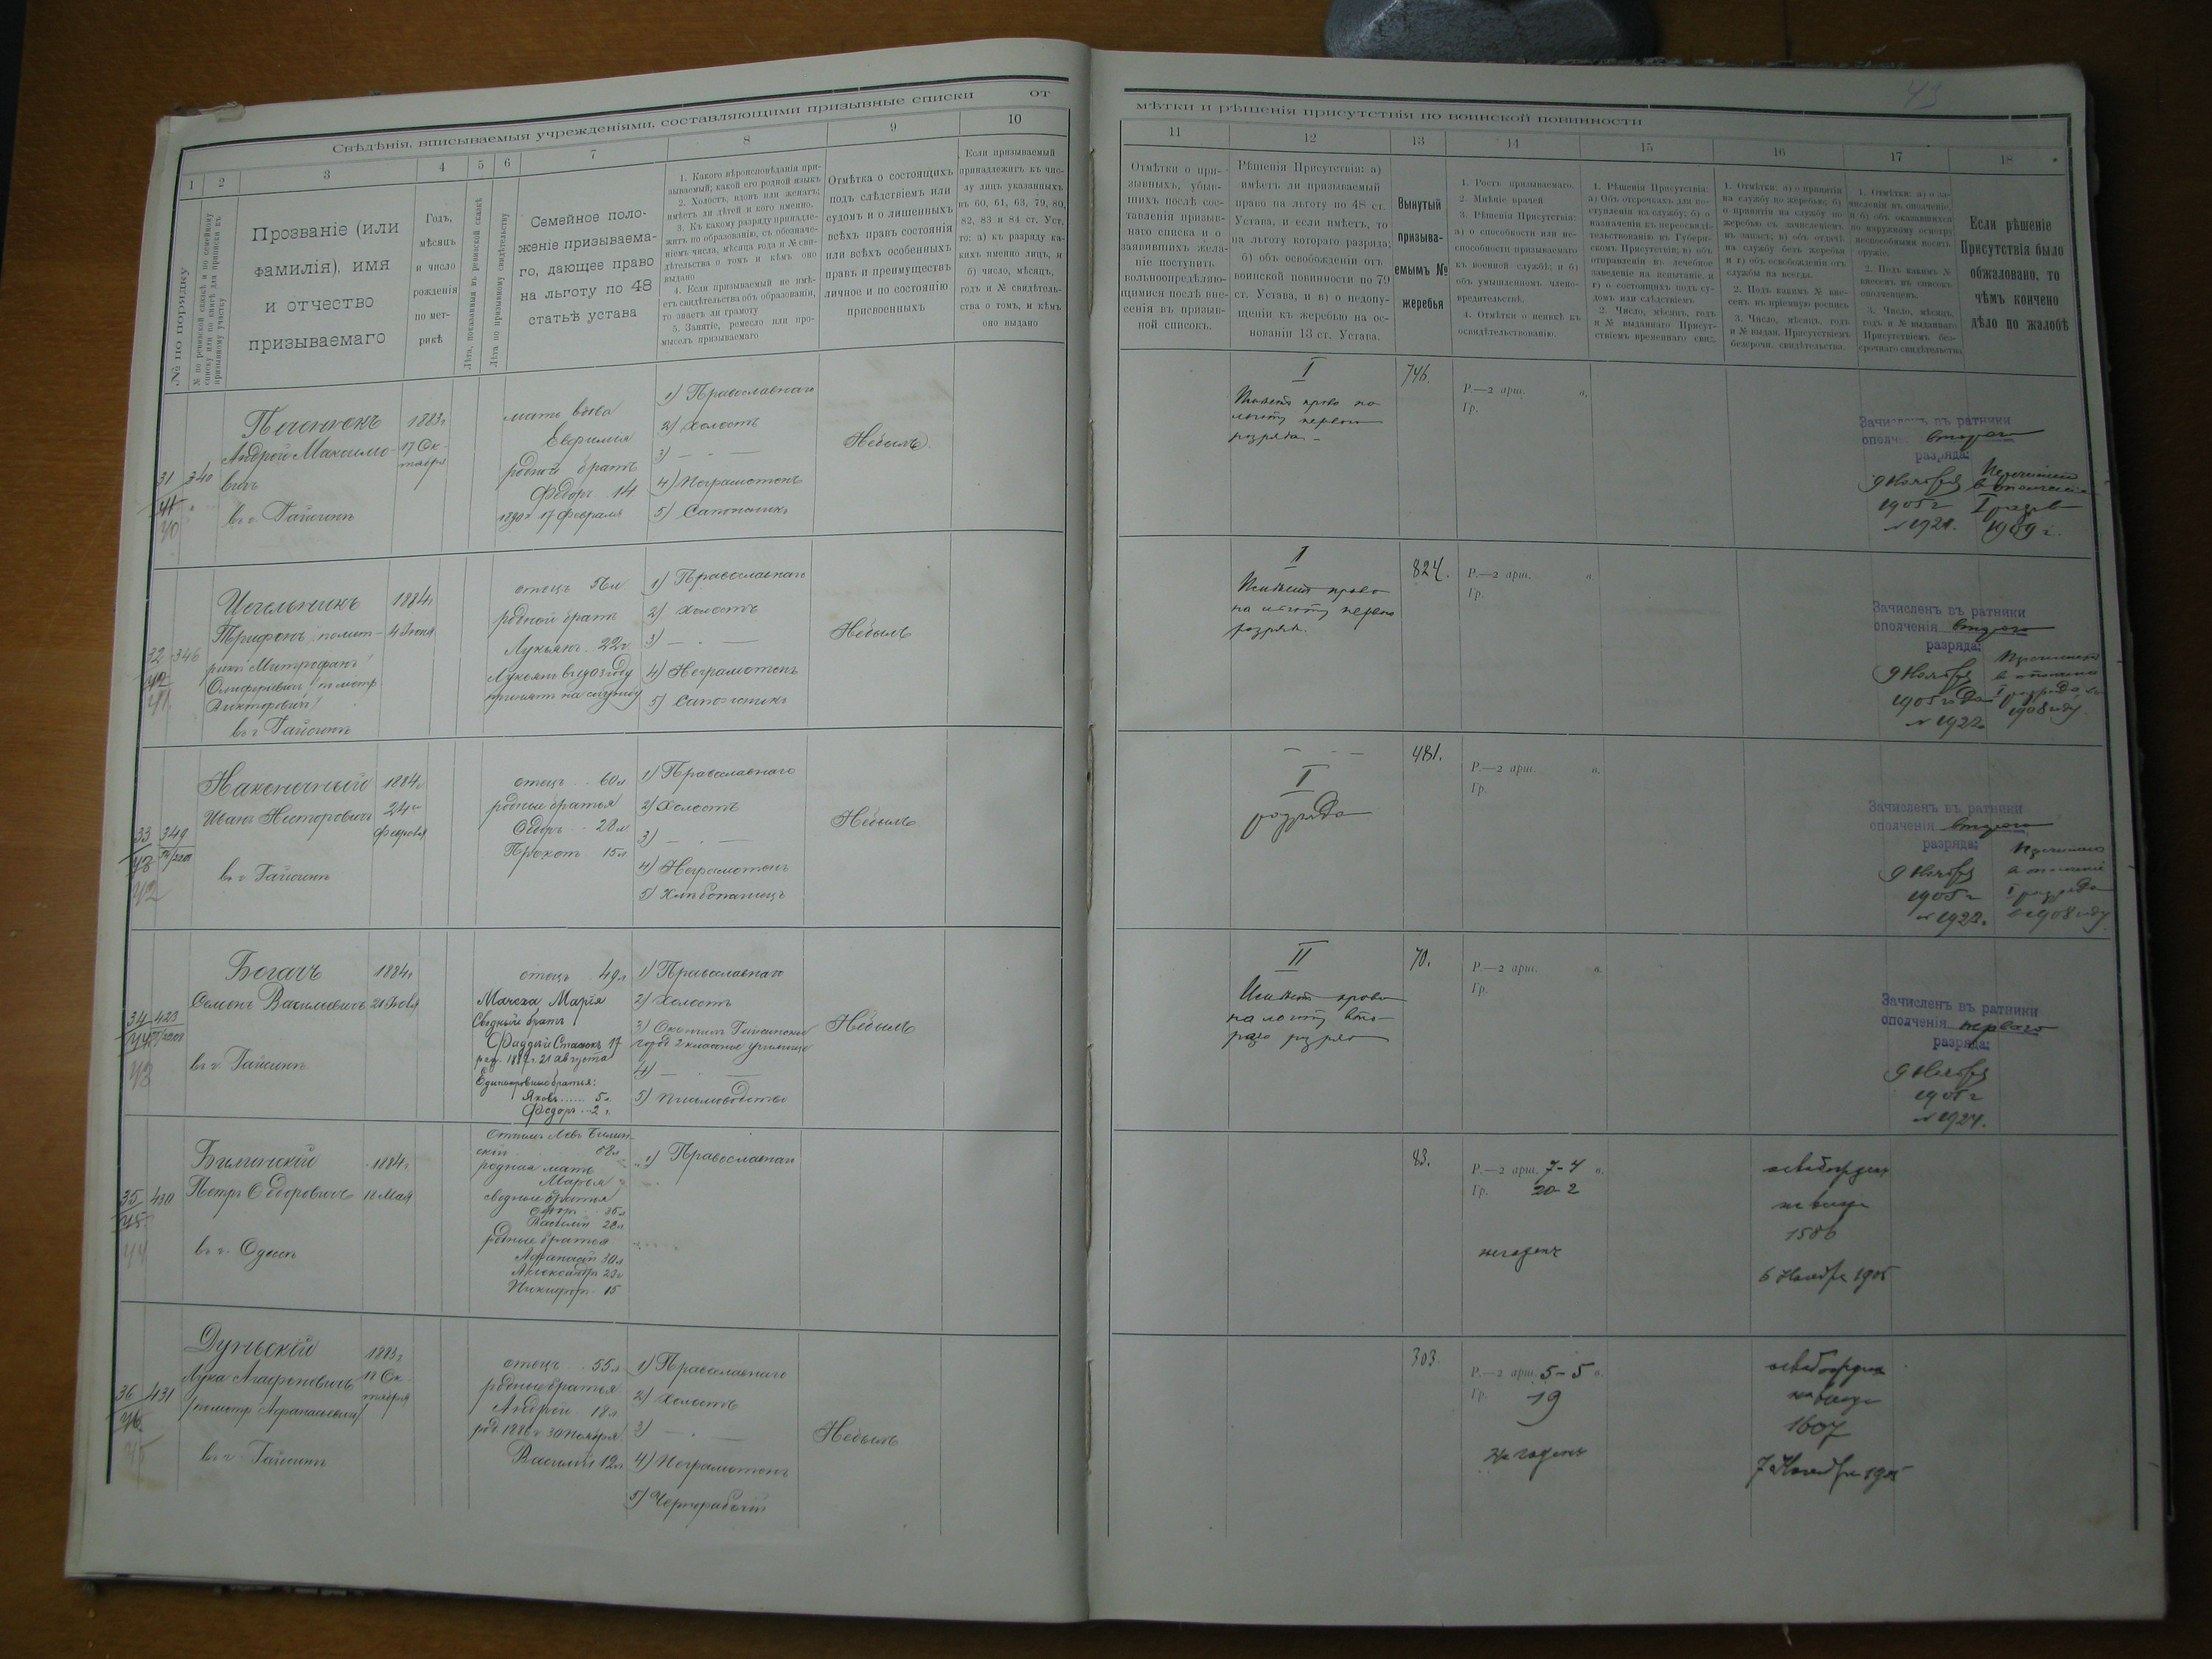 Свѣдѣнія, вписываемыя учрежденіями, составляющими призывные списки
от
1 2 3 4 5 6 7 8 9 10
№ по порядку
№ по ревизской сказкѣ и по семейному
списку или по книгѣ для приписки къ
призывному участку
Прозваніе (или
фамилія), имя
и отчество
призываемаго
Годъ,
мѣсяцъ
и число
рожденія
по мет-
рикѣ
Лѣта, показанныя въ ревизской сказкѣ
Лѣта по призывному свидѣтельству
Семейное поло-
женіе призываема-
го, дающее право
на льготу по 48
статьѣ устава
1. Какого вѣроисповѣданія при-
зываемый; какой его родной языкъ
2. Холостъ, вдовъ или женатъ;
имѣетъ ли дѣтей и кого именно.
3. Къ какому разряду принадле-
житъ по образованію, съ обозначе-
ніемъ числа, мѣсяца года и № сви-
дѣтельства о томъ и кѣмъ оно
выдано
4. Если призываемый не имѣ-
етъ свидѣтельства объ образованіи,
то знаетъ ли грамоту
5. Занятіе, ремесло или про-
мыселъ призываемаго
Отмѣтка о состоящихъ
подъ слѣдствіемъ или
судомъ и о лишенныхъ
всѣхъ правъ состоянія
или всѣхъ особенныхъ
правъ и преимуществъ
личное и по состоянію
присвоенныхъ
Если призываемый
принадлежитъ къ чис-
лу лицъ указанныхъ
въ 60, 61, 63, 79, 80,
82, 83 и 84 ст. Уст.
то: а) къ разряду ка-
кихъ именно лицъ, и
б) число, мѣсяцъ,
годъ и № свидѣтель-
ства о томъ, и кѣмъ
оно выдано
31 340
Андрей Максимо-
вичъ
въ г. Гайсинѣ
1883 г.
17 Ок-
тября
мать вдова
Евфимія
родной братъ
Федоръ 14
1890 г 17 Февраля
1) Православнаго
2) Холостъ
3) — . —
4) Неграмотенъ
5) Сапожникъ
Небылъ
32 346
Трифонъ, помет-
рикѣ Митрофанъ
въ г Гайсинѣ
1884 г
4 Іюня
отецъ 56 л
родной братъ
Лукьянъ 22 г
Лукьянъ въ 1903 году
принятъ на службу
1) Православнаго
2) Холостъ
3) — . —
4) Неграмотенъ
5) Сапожникъ
Небылъ
33 349
Наконечный
Иванъ Несторовичъ
въ г. Гайсинѣ
1884 г
24
Февраля
отецъ 60 л
родные братья
Ѳедоръ 28 л
Прокопъ 15 л
1) Православнаго
2) Холостъ
3) — . —
4) Неграмотенъ
5) Хлѣбопашецъ
Небылъ
34 423
Богачъ
Семенъ Васильевичъ
въ г. Гайсинѣ
1884 г
отецъ 49 л
Мачеха Марія
Сводный братъ
Фаддей 17
21 августа
Единокровные братья:
Яковъ...... 5 л.
Федоръ... 2 г.
1) Православнаго
2) Холостъ
3) Окончилъ Гайсинское
город 2 классное училище
4) — . —
5) Письмоводство
Небылъ
35 430
Билинскій
Петръ Ѳедоровичъ
въ г. Одессѣ
1884 г
18 Мая
родная мать
Марья
сводные братья
Василій 28 л
родные братья
Афанасій 30 л
Александръ 23 г
Никифоръ 15
1) Православнаго
36 431
Дуньскій
Лука Агафоновичъ
въ г. Гайсинѣ
1883 г
18 Ок-
тября
отецъ 55 л
родные братья
Андрей 18 л
род. 1886 г 30 Ноября
Василій 12 л
1) Православнаго
2) Холостъ
3) — . —
4) Неграмотенъ
5) Чернорабочій
Небылъ
мѣтки и рѣшенія присутствія по воинской повинности
11 12 13 14 15 16 17 18
Отмѣтки о при-
зывныхъ, убыв-
шихъ послѣ сос-
тавленія призыв-
наго списка и о
заявившихъ жела-
ніе поступить
вольноопредѣляю-
щимися послѣ вне-
сенія въ призыв-
ной списокъ.
Рѣшенія Присутствія: а)
имѣетъ ли призываемый
право на льготу по 48 ст.
Устава, и если имѣетъ, то
на льготу котораго разряда;
б) объ освобожденіи отъ
воинской повинности по 79
ст. Устава, и в) о недопу-
щеніи къ жеребью на ос-
нованіи 13 ст. Устава.
Вынутый
призыва-
емымъ №
жеребья
1. Ростъ призываемаго.
2. Мнѣніе врачей
3. Рѣшенія Присутствія:
а) о способности или не-
способности призываемаго
къ военной службѣ; и б)
объ умышленномъ члено-
вредительствѣ.
4. Отмѣтки о неявкѣ къ
освидѣтельствованію.
1. Рѣшенія Присутствія:
а) Объ отсрочкахъ для по-
ступленія на службу; б) о
назначеніи къ переосвидѣ-
тельствованію въ Губерн-
скомъ Присутствіи; в) объ
отправленіи въ лечебное
заведеніе на испытаніе, и
г) о состоящихъ подъ су-
домъ или слѣдствіемъ.
2. Число, мѣсяцъ, годъ
и № выданнаго Присут-
ствіемъ временнаго свид.
1. Отмѣтки: а) о принятіи
на службу по жеребью; б)
о принятіи на службу по
жеребью съ зачисленіемъ
въ запасъ; в) объ отдачѣ
на службу безъ жеребья
и г) объ освобожденіи отъ
службы на всегда.
2. Подъ какимъ № вне-
сенъ въ пріемную роспись
3. Число, мѣсяцъ, годъ
и № выдан. Присутствіемъ
безсрочн. свидѣтельства.
1. Отмѣтки: а) о за-
численіи въ ополченіе;
и б) объ оказавшихся
по наружному осмотру
неспособными носить
оружіе.
2. Подъ какимъ №
внесенъ въ списокъ
ополченцевъ.
3. Число, мѣсяцъ,
годъ и № выданнаго
Присутствіемъ без-
срочнаго свидѣтельства
Если рѣшеніе
Присутствія было
обжаловано, то
чѣмъ кончено
дѣло по жалобѣ
I
Имѣетъ право на
льготу перваго
разряда
746.
Р.—2 арш. в.
Гр.
Зачисленъ въ ратники
ополч. второго
разряда:
9 Ноября
1905 г
№ 1921.
I
Имѣетъ право
на льготу перваго
разряда.
824.
Р.—2 арш. в.
Гр.
Зачисленъ въ ратники
ополченія второго
разряда:
9 Ноября
1905 года
№ 1922
I разряда
1908 году
I
разряда
481.
Р.—2 арш. в.
Гр.
Зачисленъ въ ратники
ополченія второго
разряда:
9 Ноября
1905 г
I разряда
въ 1908 году
II
Имѣетъ право
на льготу вто-
раго разряда
70.
Р.—2 арш. в.
Гр.
Зачисленъ въ ратники
ополченія перваго
разряда:
9 Ноября
1905 г
№ 1924.
83.
Р.—2 арш. 7-4 в.
Гр. 20-2
негоденъ
освобожденъ
1586
6 Ноября 1905
303.
Р.—2 арш. 5-5 в.
Гр. 19
Не годенъ
освобожденъ
1607
7 Ноября 1905